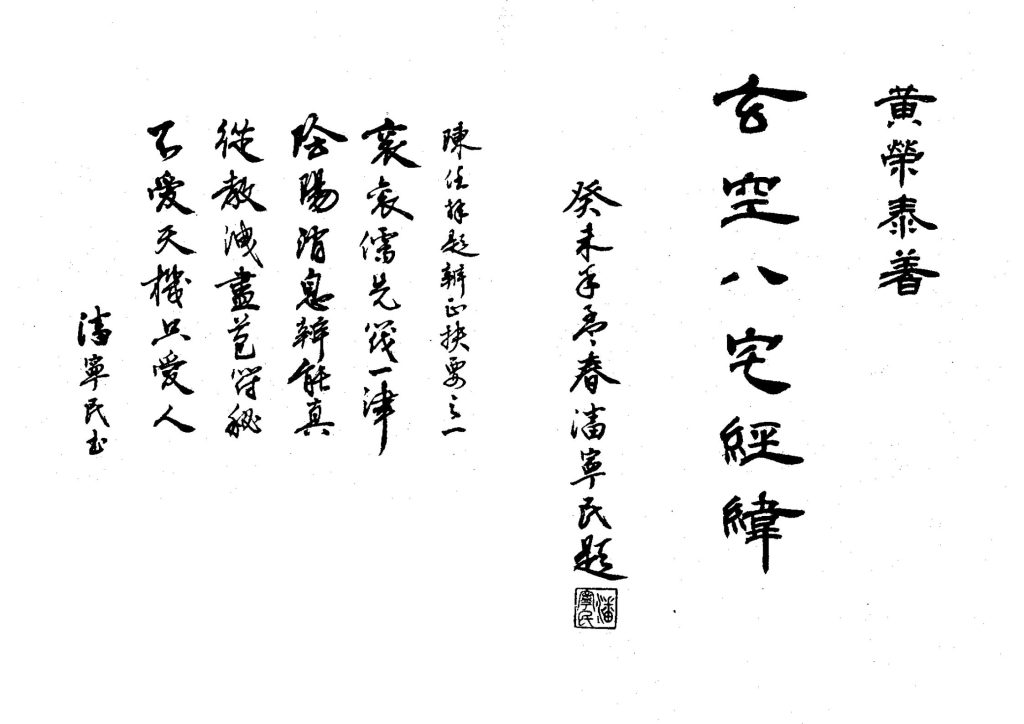 黃榮泰著
玄空八宅經緯
癸未年孟春潘寧民題
潘寧民
陳任題辨正抉要之一
袞袞儒先筏一津
陰陽消息辨能真
從教洩盡苞符秘
不愛天機只愛人
潘寧民書